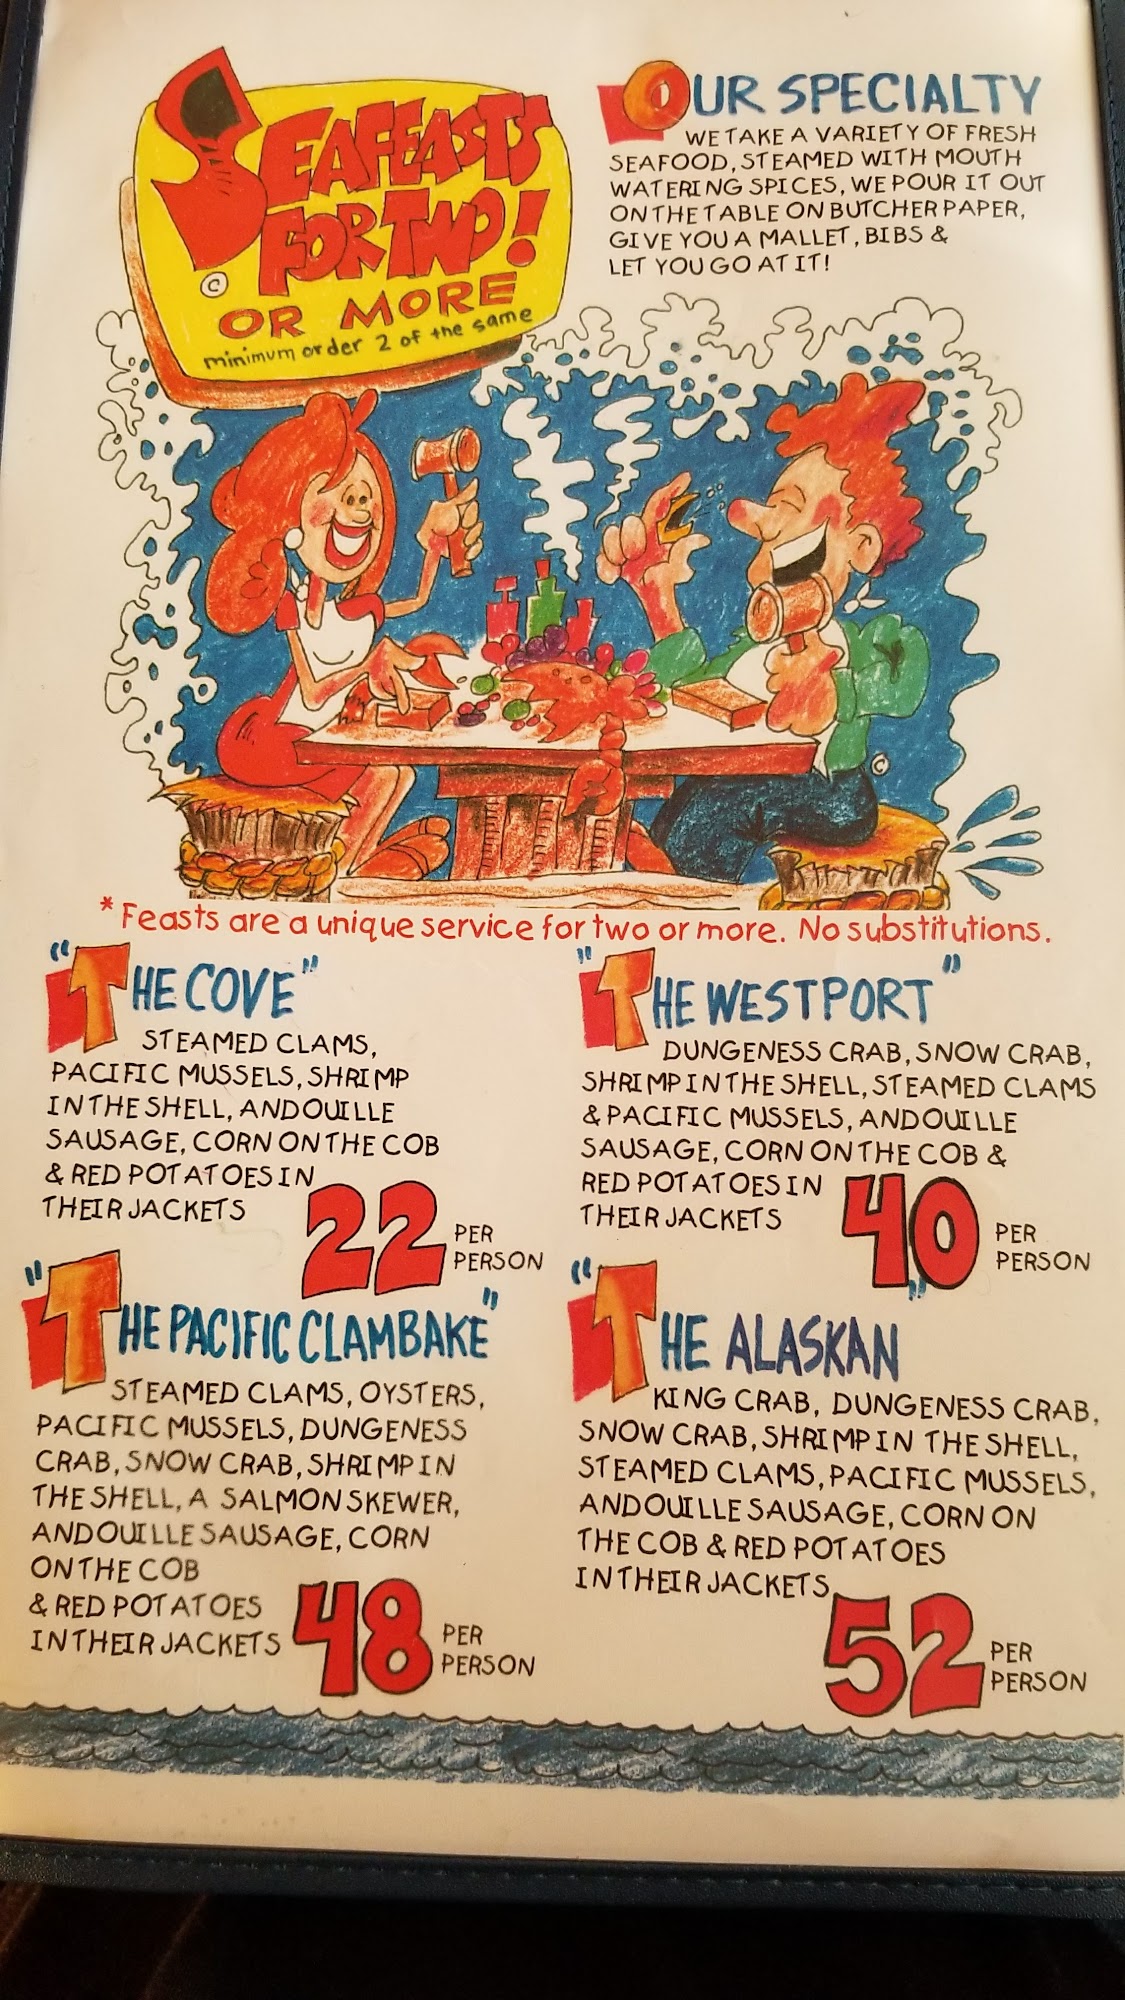 SEAFEASTS
FOR TWO!
©
OR MORE
minimum order 2 of the same
OUR SPECIALTY
WE TAKE A VARIETY OF FRESH
SEAFOOD, STEAMED WITH MOUTH
WATERING SPICES, WE POUR IT OUT
ON THE TABLE ON BUTCHER PAPER,
GIVE YOU A MALLET, BIBS &
LET YOU GO AT IT!
©
*Feasts are a unique service for two or more. No substitutions.
"THE COVE"
STEAMED CLAMS,
PACIFIC MUSSELS, SHRIMP
IN THE SHELL, ANDOUILLE
SAUSAGE, CORN ON THE COB
& RED POTATOES IN
THEIR JACKETS
22 PER
PERSON
"THE WESTPORT"
DUNGENESS CRAB, SNOW CRAB,
SHRIMP IN THE SHELL, STEAMED CLAMS
& PACIFIC MUSSELS, ANDOUILLE
SAUSAGE, CORN ON THE COB &
RED POTATOES IN
THEIR JACKETS
40 PER
PERSON
"THE PACIFIC CLAMBAKE"
STEAMED CLAMS, OYSTERS,
PACIFIC MUSSELS, DUNGENESS
CRAB, SNOW CRAB, SHRIMP IN
THE SHELL, A SALMON SKEWER,
ANDOUILLE SAUSAGE, CORN
ON THE COB
& RED POTATOES
IN THEIR JACKETS
48 PER
PERSON
"THE ALASKAN"
KING CRAB, DUNGENESS CRAB,
SNOW CRAB, SHRIMP IN THE SHELL,
STEAMED CLAMS, PACIFIC MUSSELS,
ANDOUILLE SAUSAGE, CORN ON
THE COB & RED POTATOES
IN THEIR JACKETS
52 PER
PERSON